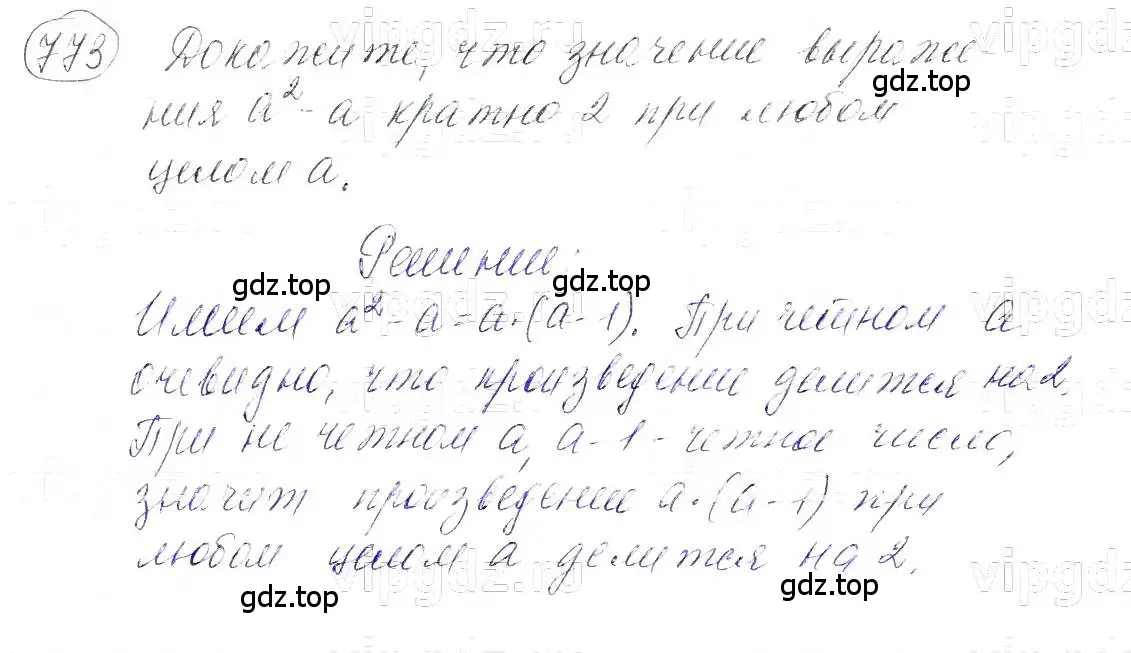 773 Докажите, что значение выраже
ния a² - a кратно 2 при любом
целом a.
Решение:
Имеем a² - a = a·(a-1). При четном a
очевидно, что произведение делится на 2.
При не четном a, a-1 - четное число,
значит произведение a·(a-1) при
любом целом a делится на 2.
gdz.top
gdz.top
gdz.top
gdz.top
gdz.top
vipgdz.ru
vipgdz.ru
vipgdz